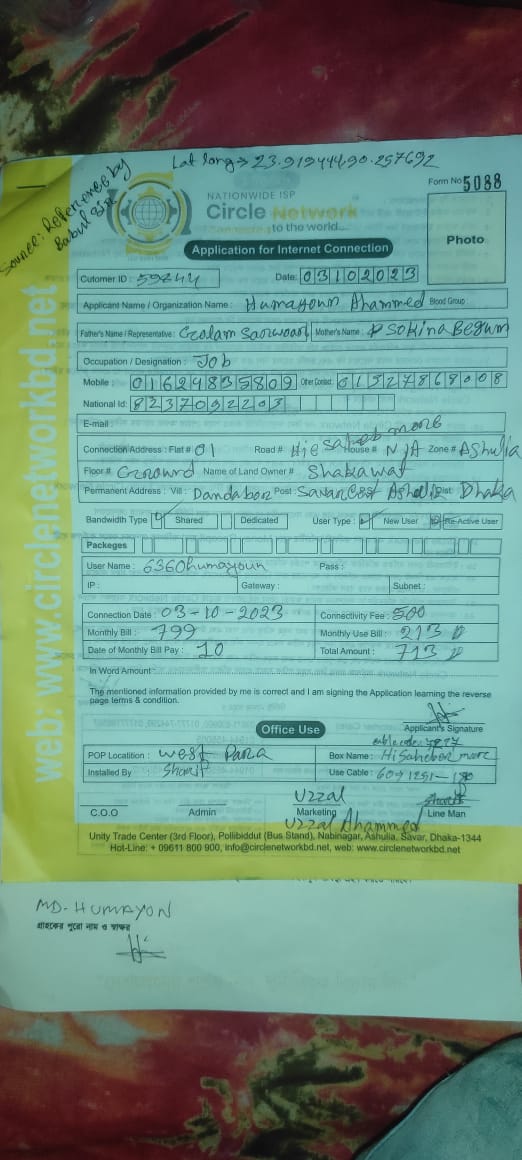 Lat long → 23.919444,90.257692
Source: Reference by
Babul Sir
Form No 5088
NATIONWIDE ISP
Circle Network
Connecting to the world...
Photo
Application for Internet Connection
Cutomer ID : 59244 Date: 03102023
Applicant Name / Organization Name : Humayoun Ahammed Blood Group :
Father's Name / Representative : Golam Sarwoar Mother's Name : Sokina Begum
Occupation / Designation : Job
Mobile : 01624835809 Other Contact : 01527868008
National Id: 8237092203
E-mail :
Connection Address : Flat # 01 Road # Hje Saheb more House # N/A Zone # Ashulia
Floor # Ground Name of Land Owner # Shakawat
Permanent Address : Vill : Dandabor Post : Savar Cost Ashulia Dist : Dhaka
Bandwidth Type Shared Dedicated User Type : New User Re-Active User
Packeges
User Name : 6360humayoun Pass :
IP : Gateway : Subnet :
Connection Date : 03-10-2023 Connectivity Fee : 500
Monthly Bill : 799 Monthly Use Bill : 213
Date of Monthly Bill Pay : 10 Total Amount : 713
In Word Amount :
The mentioned information provided by me is correct and I am signing the Application learning the reverse
page terms & condition.
Applicant's Signature
Office Use
POP Locatition : West Para Box Name : Hi Saheber more
Installed By : Sharif Use Cable :
Uzzal Sharif
C.O.O Admin Marketing Line Man
Uzzal Ahammed
Unity Trade Center (3rd Floor), Pollibiddut (Bus Stand), Nabinagar, Ashulia, Savar, Dhaka-1344
Hot-Line: + 09611 800 900, info@circlenetworkbd.net, web: www.circlenetworkbd.net
web: www.circlenetworkbd.net
MD-HUMAYON
গ্রাহকের পুরো নাম ও স্বাক্ষর